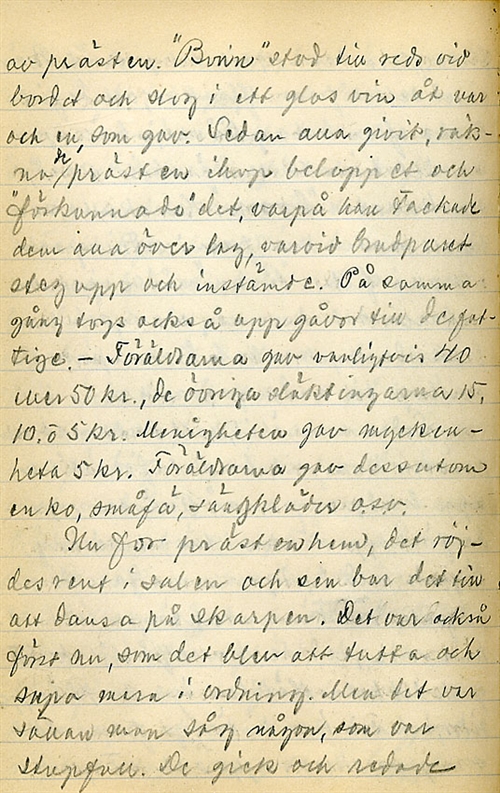 av prästen. "Bonin" stod till reds vid
bordet och slog i ett glas vin åt var
och en, som gav. Sedan alla givit, räk-
nade prästen ihop beloppet och
"förkunnade" det, varpå han tackade
dem alla över lag, varvid brudparet
steg upp och instämde. På samma
gång togs också upp gåvor till de fat-
tige. – Föräldrarna gav vanligtvis 40
eller 50 kr., de övriga släktingarna 15,
10, ö 5 kr. Menigheten gav mycken-
heta 5 kr. Föräldrarna gav dessutom
en ko, småfä, sängkläder o.s.v.
Nu for prästen hem, det röj-
des rent i salen och sen bar det till
att dansa på skarpen. Det var också
först nu, som det blev att tutta och
supa mera i ordning. Men det var
sällan man såg någon, som var
stupfull. De gick och redade